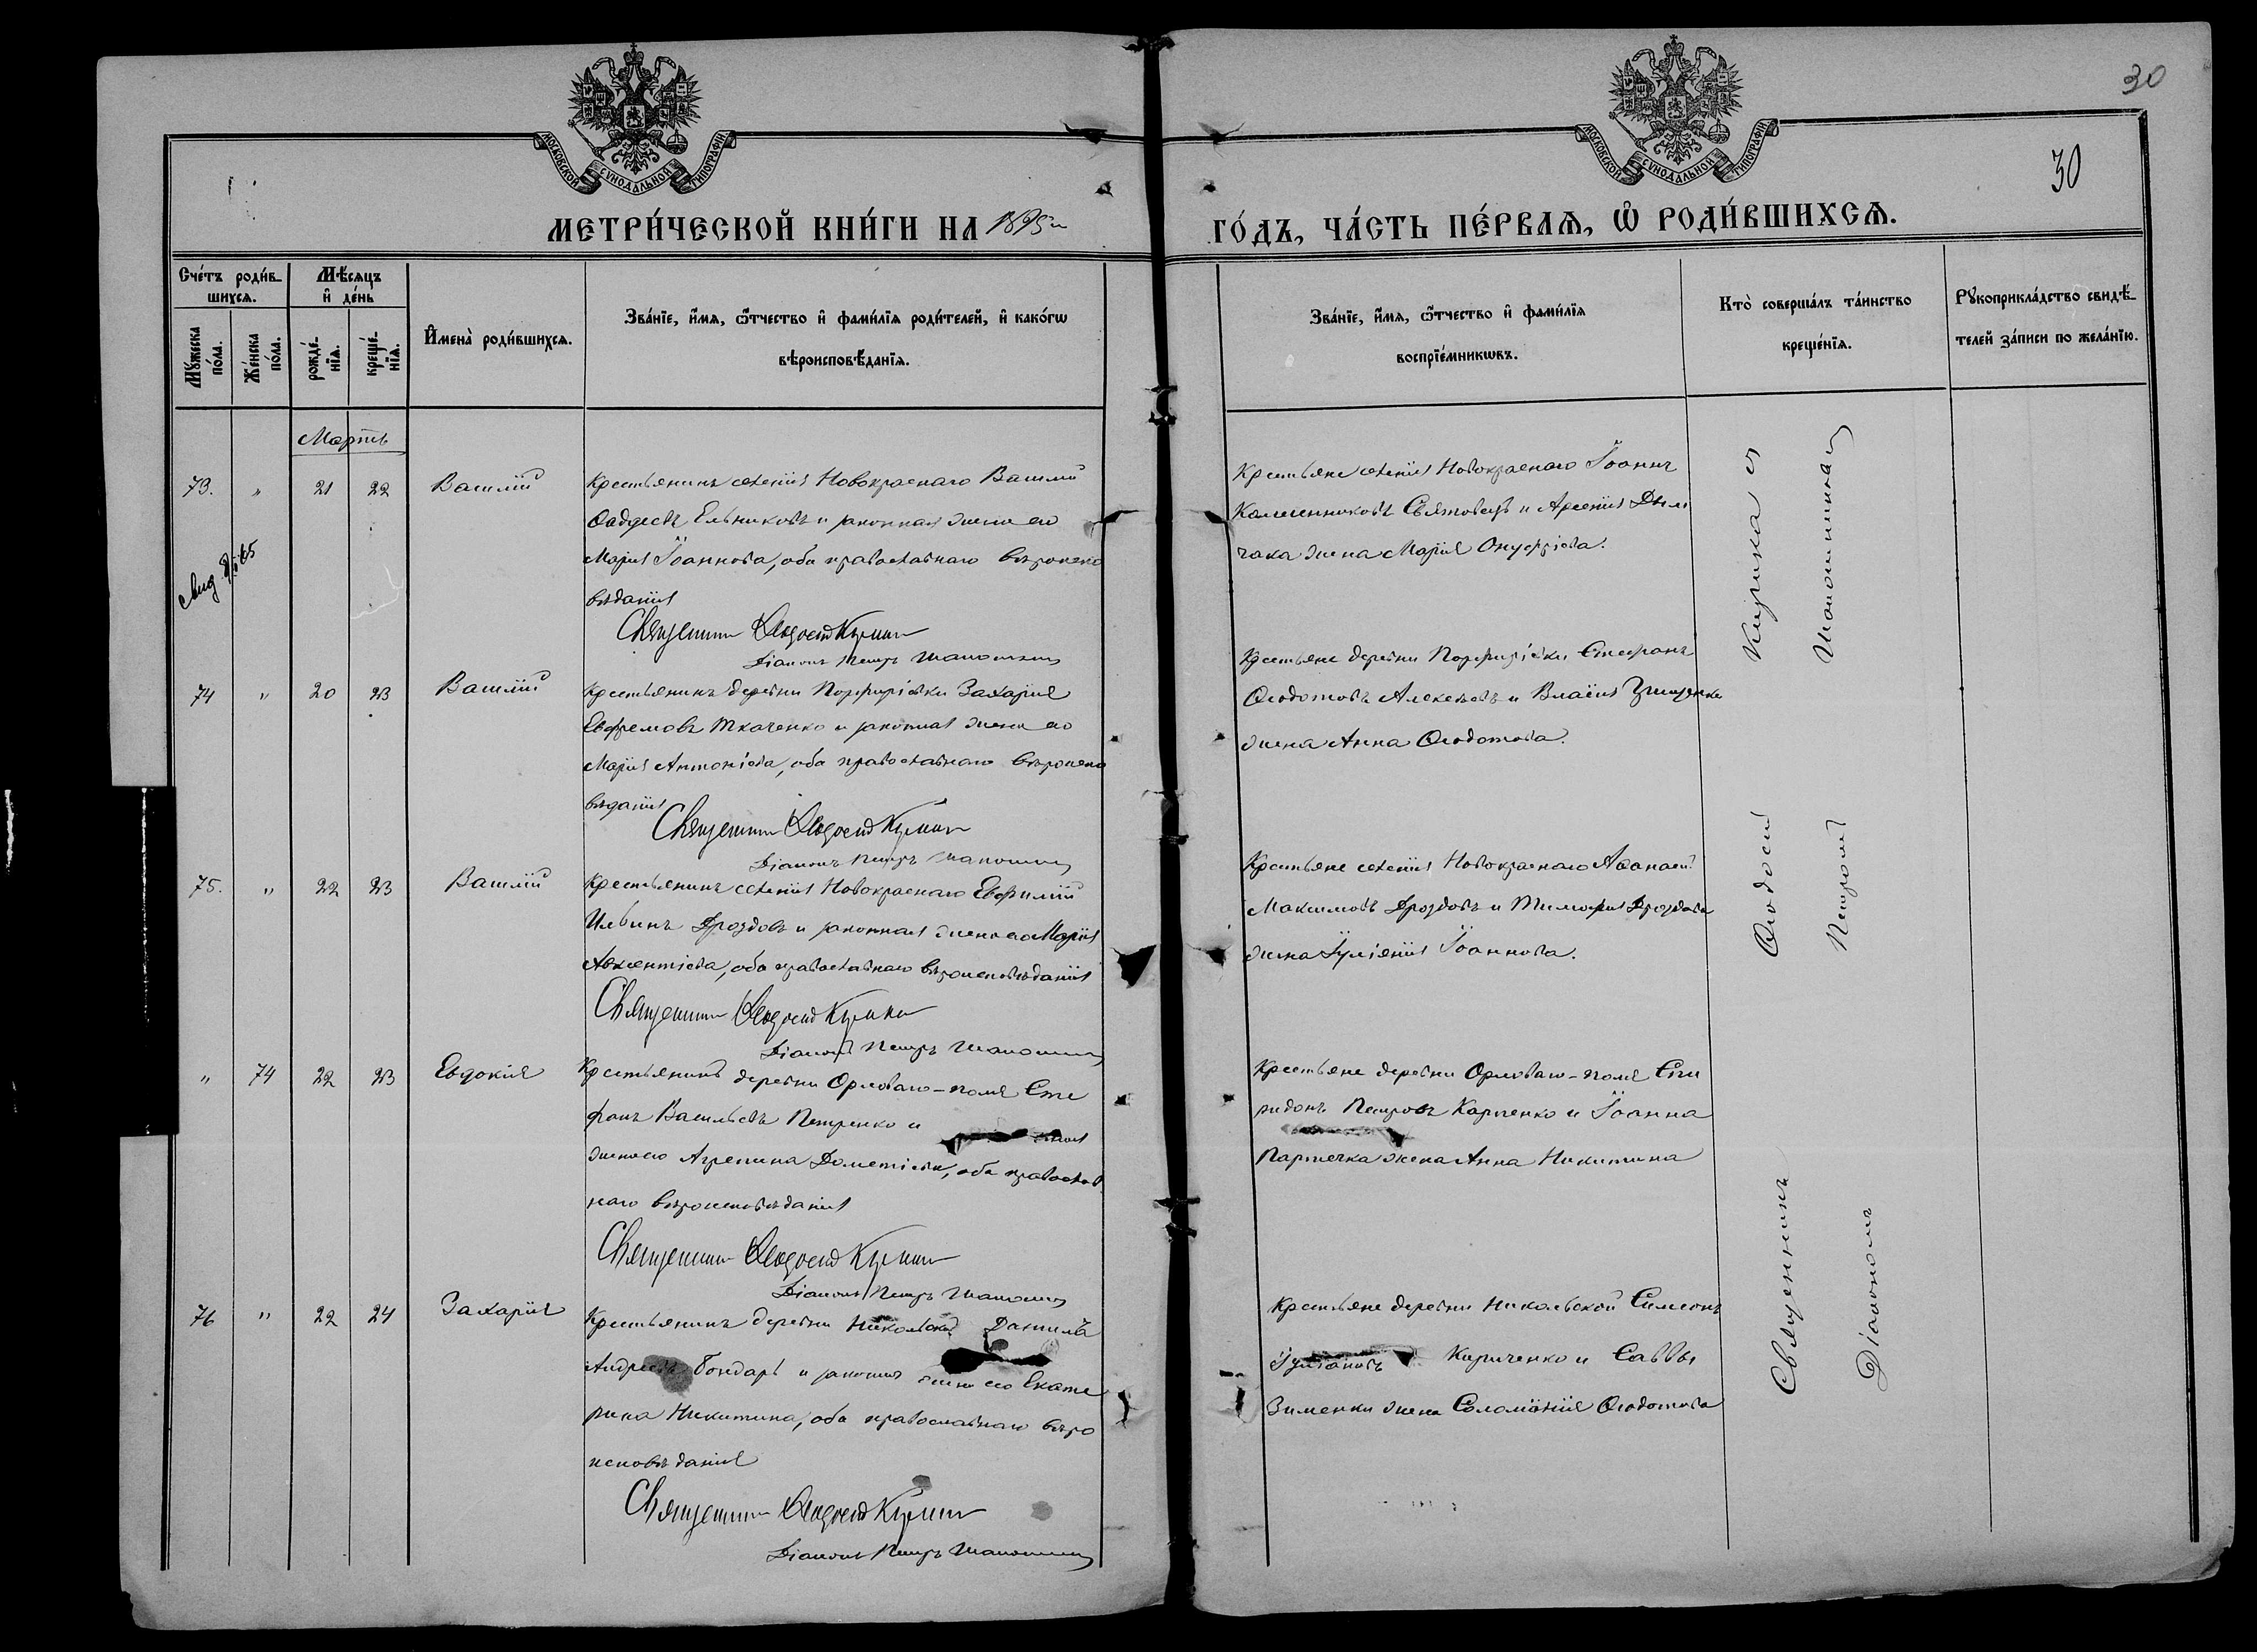 30
30
МОСКОВСКОЙ СУНОДАЛЬНОЙ ТИПОГРАФІИ.
МОСКОВСКОЙ СУНОДАЛЬНОЙ ТИПОГРАФІИ.
МЕТРИ́ЧЕСКОЙ КНИ́ГИ НА 1895й
ГО́ДЪ, ЧА́СТЬ ПЕ́РВАѦ, Ѡ РОДИ́ВШИХСѦ.
Сче́тъ роди́в-
шихсѧ.
Мꙋ́жеска по́ла.
Же́нска по́ла.
Мѣ́сѧцъ
и҆ де́нь
рожде́-нїѧ.
креще́-нїѧ.
И҆мена̀ роди́вшихсѧ.
Зва́нїе, и҆́мѧ, ѻ҆́тчество и҆ фами́лїѧ роди́телей, и҆ како́гѡ
вѣроисповѣ́данїѧ.
Зва́нїе, и҆́мѧ, ѻ҆́тчество и҆ фами́лїѧ
воспрїе́мникѡвъ.
Кто̀ соверша́лъ та́инство
креще́нїѧ.
Рꙋкоприкла́дство свидѣ́-
телей за́писи по жела́нїю.
Мартъ
73. " 21 22 Василій
Крестьянинъ селенія Новокраснаго Василій
Фаддеевъ Ельниковъ и законная жена его
Марія Іоаннова, оба православнаго вѣроиспо
вѣданія
Священникъ Ѳеодосій Кирика
Діаконъ Петръ Шапошник
Крестьяне селенія Новокраснаго Іоаннъ
жена Марія Онуфріева.
74 " 20 23 Василій
Крестьянинъ деревни Порфиріевки Захарія
Евфремовъ Ткаченко и законная жена его
Марія Антоніева, оба православнаго вѣроиспо
вѣданія
Священникъ Ѳеодосій Кирика
Діаконъ Петръ Шапошник
Крестьяне деревни Порфиріевки Стефанъ
Ѳеодотовъ Алексѣевъ и Власія
жена Анна Ѳеодотова.
75. " 22 23 Василій
Крестьянинъ селенія Новокраснаго Евфимій
Ильинъ Дроздовъ и законная жена его Марія
Авксентіева, оба православнаго вѣроисповѣданія
Священникъ Ѳеодосій Кирика
Діаконъ Петръ Шапошник
Крестьяне селенія Новокраснаго Аѳанасій
Максимовъ Дроздовъ и Тимофея Дроздова
жена Іуліанія Іоаннова.
" 74 22 23 Евдокія
Крестьянинъ деревни Орловаго-поля Сте
фанъ Васильевъ Петренко и
жена его Агрепина Дометіева, оба православ
наго вѣроисповѣданія
Священникъ Ѳеодосій Кирика
Діаконъ Петръ Шапошник
Крестьяне деревни Орловаго-поля Спи
ридонъ Петровъ Карпенко и Іоанна
жена Анна Никитина
76 " 22 24 Захарія
Крестьянинъ деревни Никольской Даніилъ
Андреевъ Бондарь и законная жена его Екате
рина Никитина, оба православнаго вѣро
исповѣданія
Священникъ Ѳеодосій Кирика
Діаконъ Петръ Шапошник
Крестьяне деревни Никольской Симеонъ
Іуліановъ Кириченко и Саввы
Зименки жена Соломонія Ѳеодотова
Священникъ Ѳеодосій Кирика съ
Діакономъ Петромъ